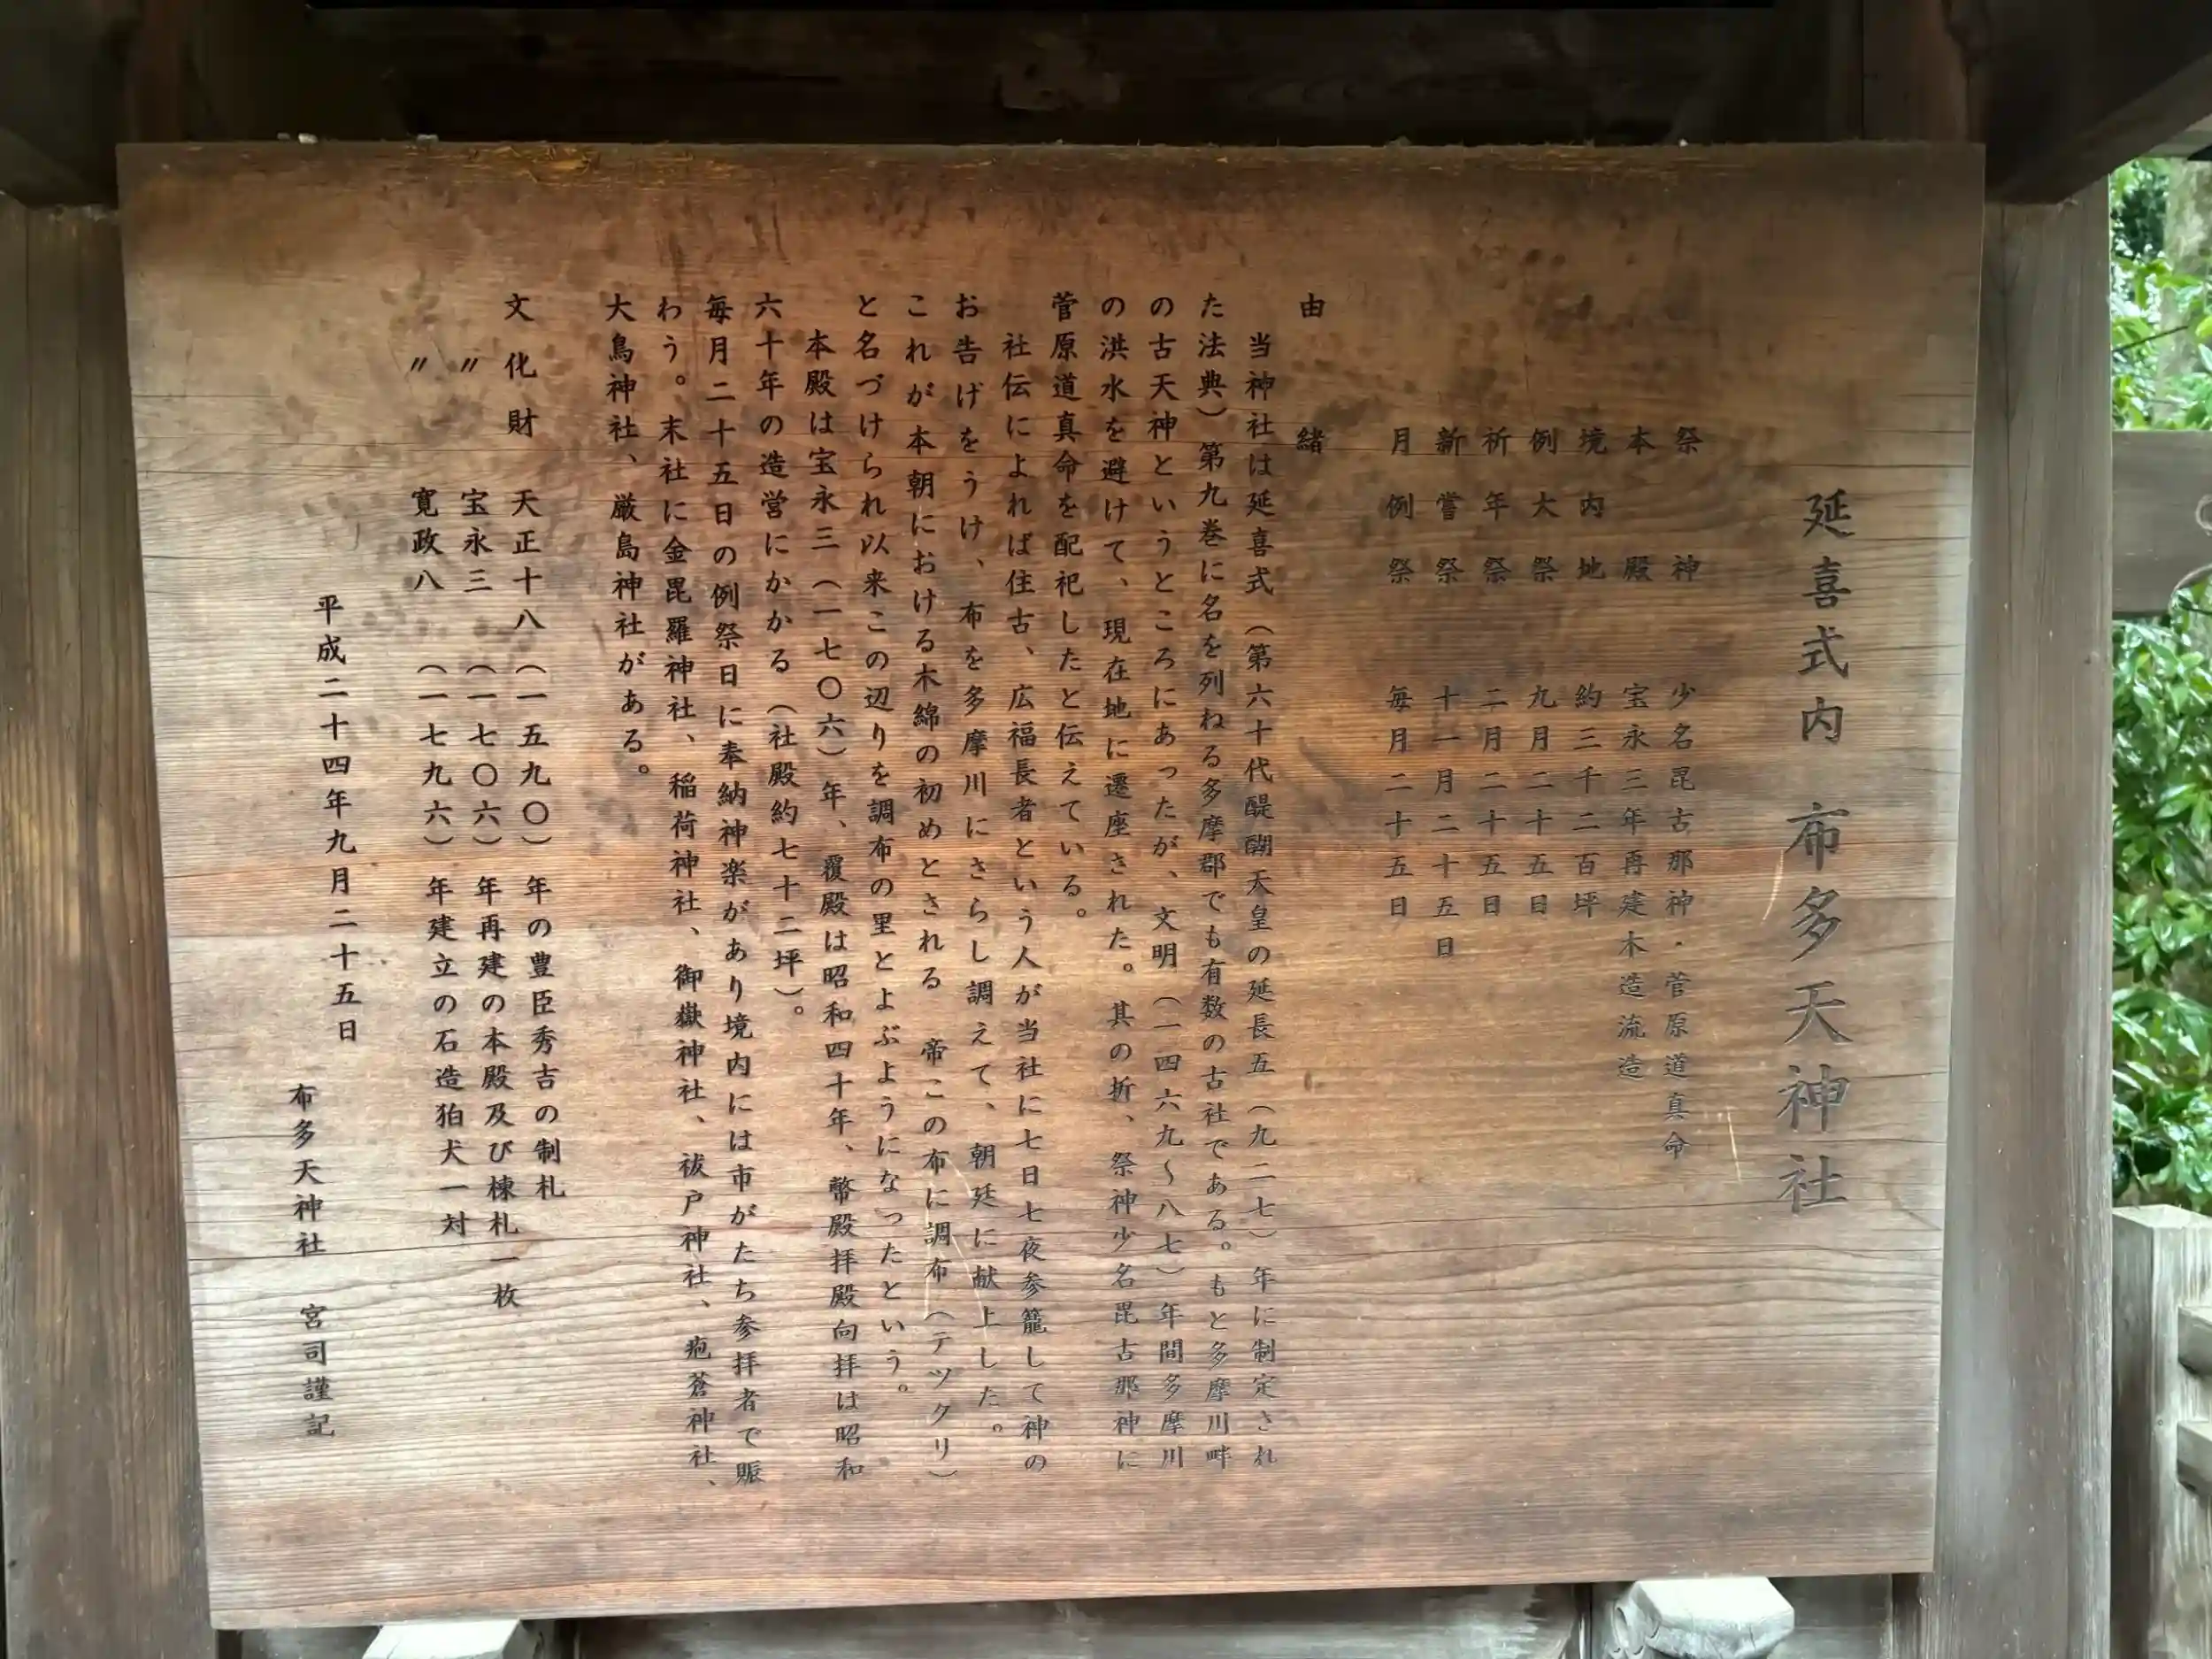 延喜式内 布多天神社
祭神 少名毘古那神・菅原道真命
本殿 宝永三年再建木造流造
境内地 約三千二百坪
例大祭 九月二十五日
祈年祭 二月二十五日
新嘗祭 十一月二十五日
月例祭 毎月二十五日
由緒
当神社は延喜式（第六十代醍醐天皇の延長五（九二七）年に制定され
た法典）第九巻に名を列ねる多摩郡でも有数の古社である。もと多摩川畔
の古天神というところにあったが、文明（一四六九〜八七）年間多摩川
の洪水を避けて、現在地に遷座された。其の折、祭神少名毘古那神に
菅原道真命を配祀したと伝えている。
社伝によれば往古、広福長者という人が当社に七日七夜参籠して神の
お告げをうけ、布を多摩川にさらし調えて、朝廷に献上した。
これが本朝における木綿の初めとされる 帝この布に調布（テヅクリ）
と名づけられ以来この辺りを調布の里とよぶようになったという。
本殿は宝永三（一七〇六）年、覆殿は昭和四十年、幣殿拝殿向拝は昭和
六十年の造営にかかる（社殿約七十二坪）。
毎月二十五日の例祭日に奉納神楽があり境内には市がたち参拝者で賑
わう。末社に金毘羅神社、稲荷神社、御嶽神社、祓戸神社、疱蒼神社、
大鳥神社、厳島神社がある。
文化財 天正十八（一五九〇）年の豊臣秀吉の制札
〃 宝永三（一七〇六）年再建の本殿及び棟札一枚
〃 寛政八（一七九六）年建立の石造狛犬一対
平成二十四年九月二十五日
布多天神社 宮司謹記